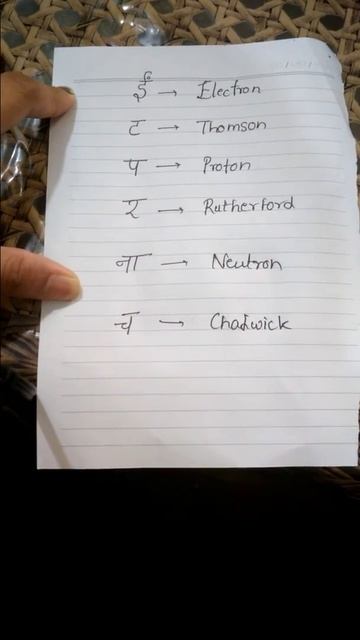 ई → Electron
ट → Thomson
प → Proton
र → Rutherford
ना → Neutron
च → Chadwick